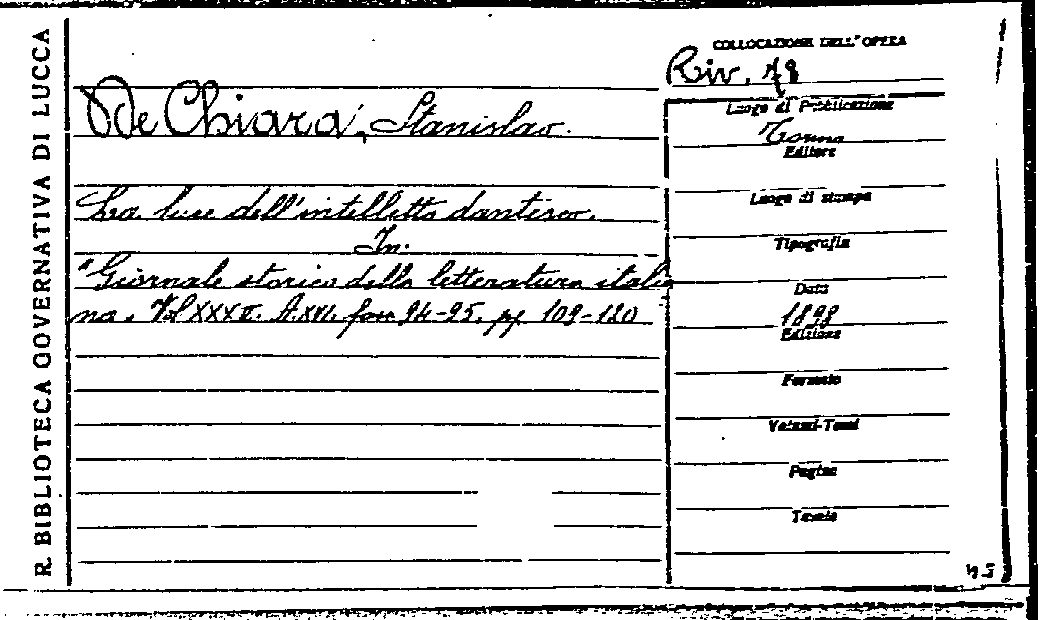 R. BIBLIOTECA GOVERNATIVA DI LUCCA
De Chiara, Stanislao.
La luce dell'intelletto dantesco.
In:
"Giornale storico della letteratura italia
na. Vol XXXII. A.XVI. fasc 94-95. pp. 109-120
COLLOCAZIONE DELL'OPERA
Riv. 78
Luogo di Pubblicazione
Torino
Editore
Luogo di stampa
Tipografia
Data
1898
Edizione
Formato
Volumi-Tomi
Pagine
Tavole